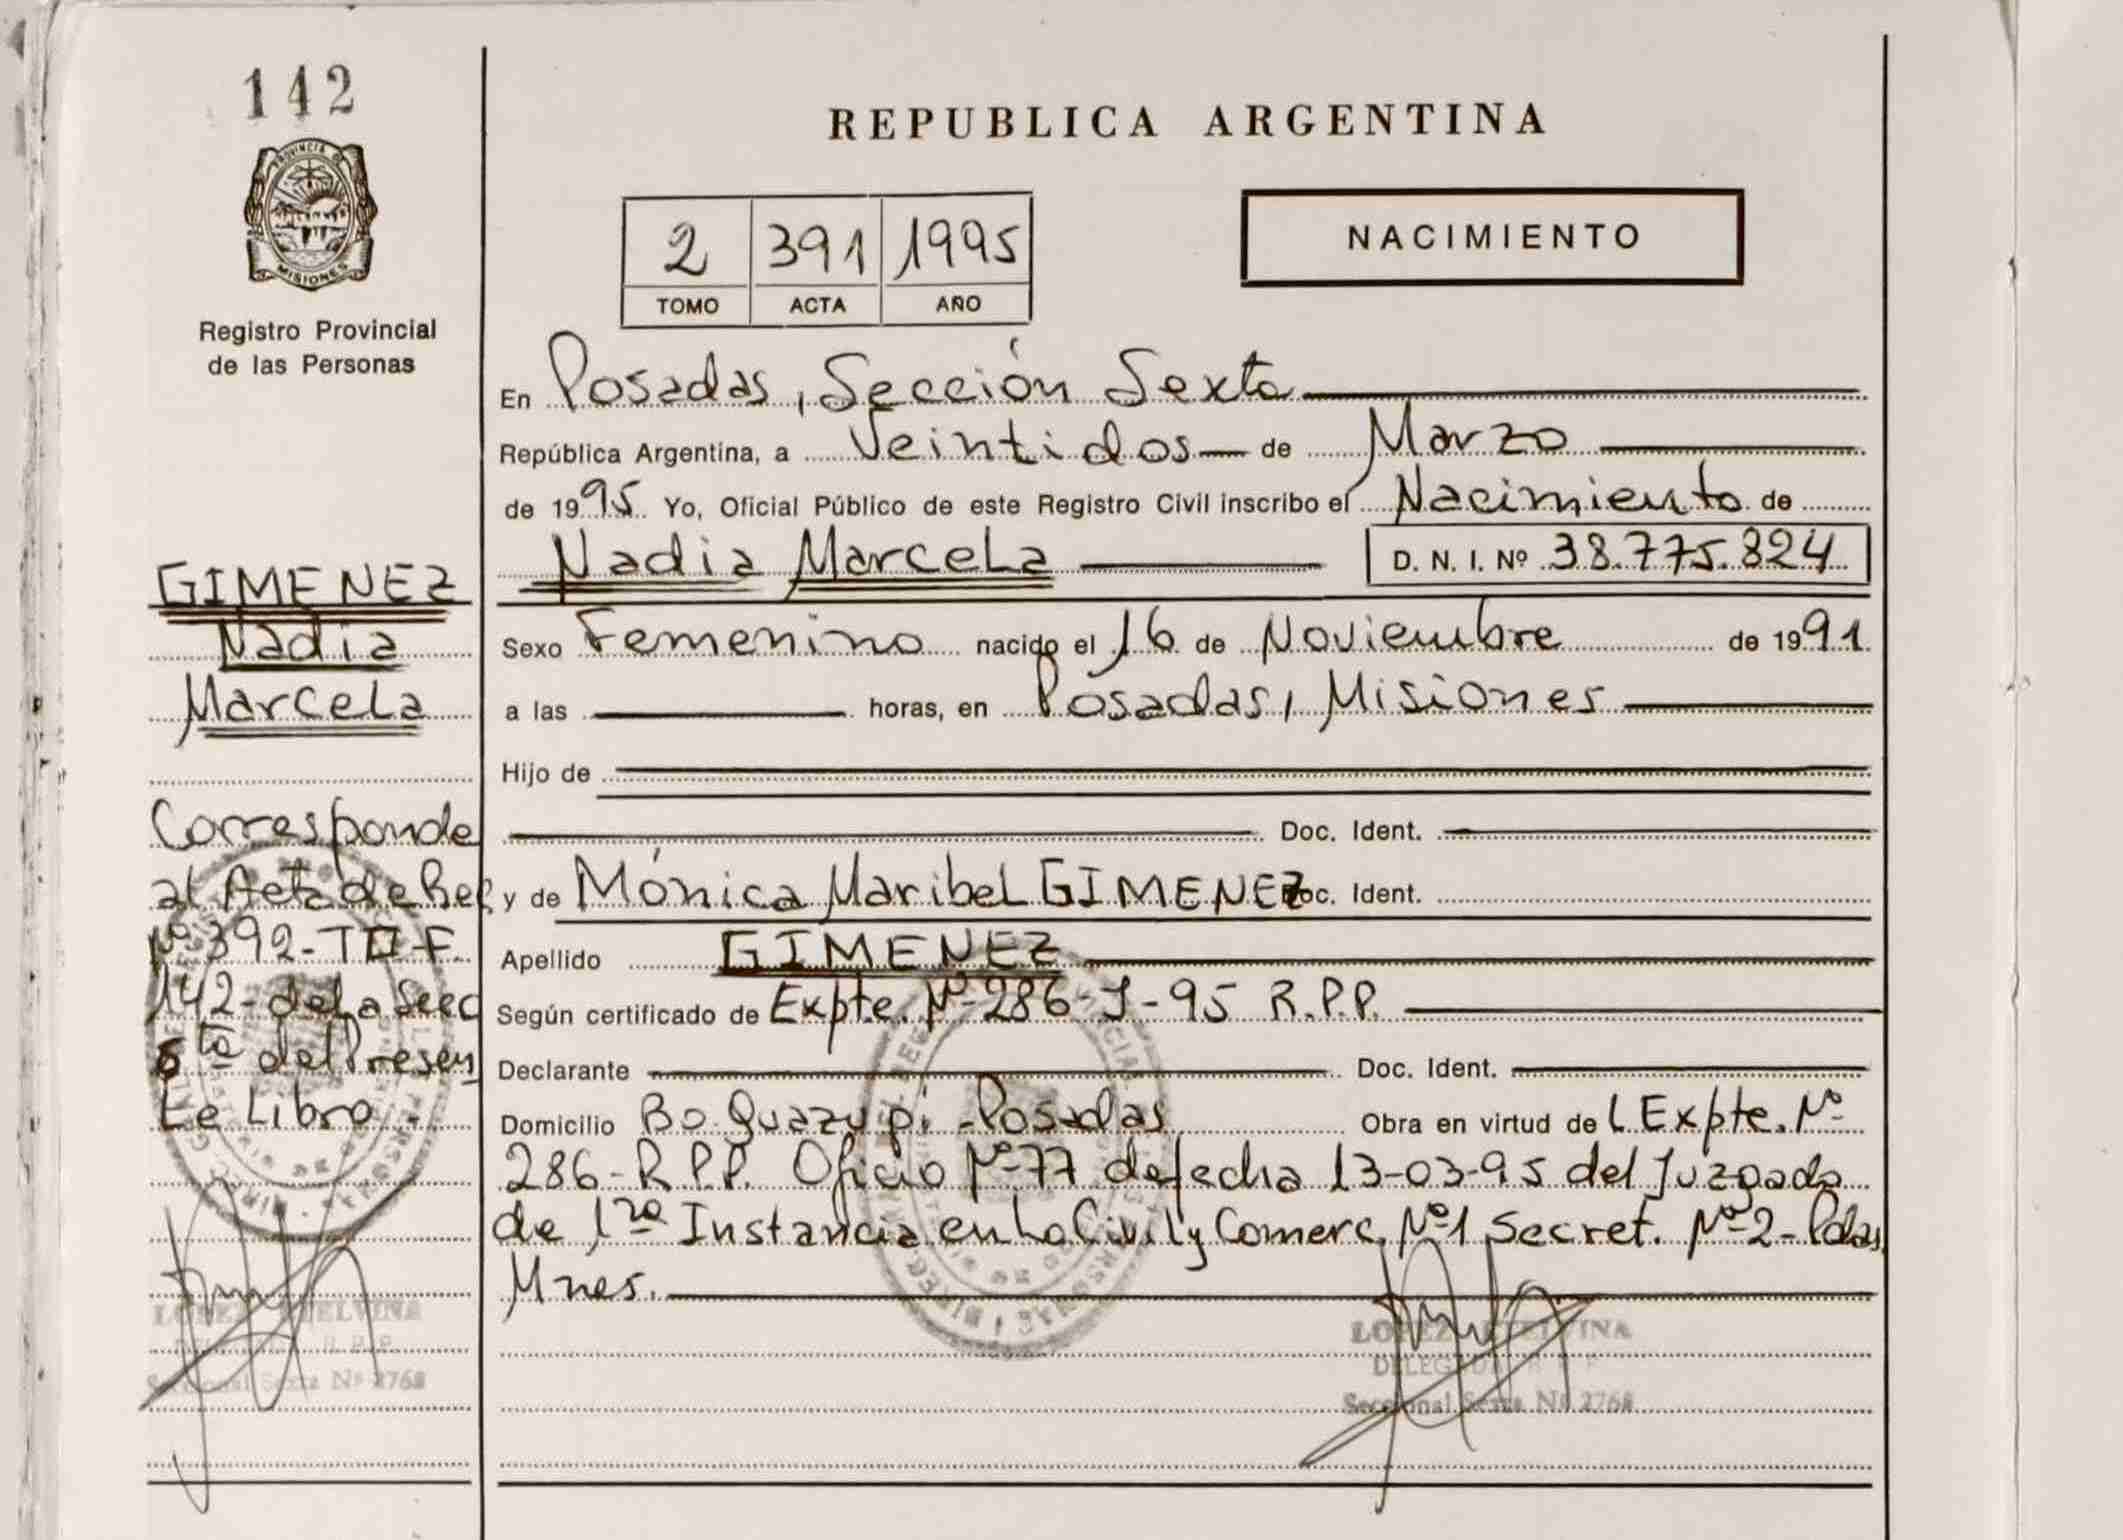 142
PROVINCIA DE
MISIONES
Registro Provincial
de las Personas
GIMENEZ
Nadia
Marcela
Corresponde
al Acta de Rec
Nº 392-T II-F
142- de La Secc
6ta del Presen
te Libro.-
LOPEZ ETELVINA
R. P. P.
Seccional Sexta Nº 2768
REPUBLICA ARGENTINA
2 391 1995
TOMO ACTA AÑO
NACIMIENTO
En Posadas, Sección Sexta
República Argentina, a Veintidos de Marzo
de 1995 Yo, Oficial Público de este Registro Civil inscribo el Nacimiento de
Nadia Marcela D. N. I. Nº 38.775.824
Sexo Femenino nacido el 16 de Noviembre de 1991
a las horas, en Posadas, Misiones
Hijo de
Doc. Ident.
y de Mónica Maribel GIMENEZ Doc. Ident.
Apellido GIMENEZ
Según certificado de Expte. Nº 286-J-95 R.P.P.
Declarante Doc. Ident.
Domicilio Bo Guazupi - Posadas Obra en virtud de L Expte. Nº
286-R.P.P. Oficio Nº 77 de fecha 13-03-95 del Juzgado
de 1ra Instancia en Lo Civil y Comerc. Nº 1 Secret. Nº 2 - Pdas
Mnes.
LOPEZ ETELVINA
DELEGADA R P P
Seccional Sexta Nº 2768